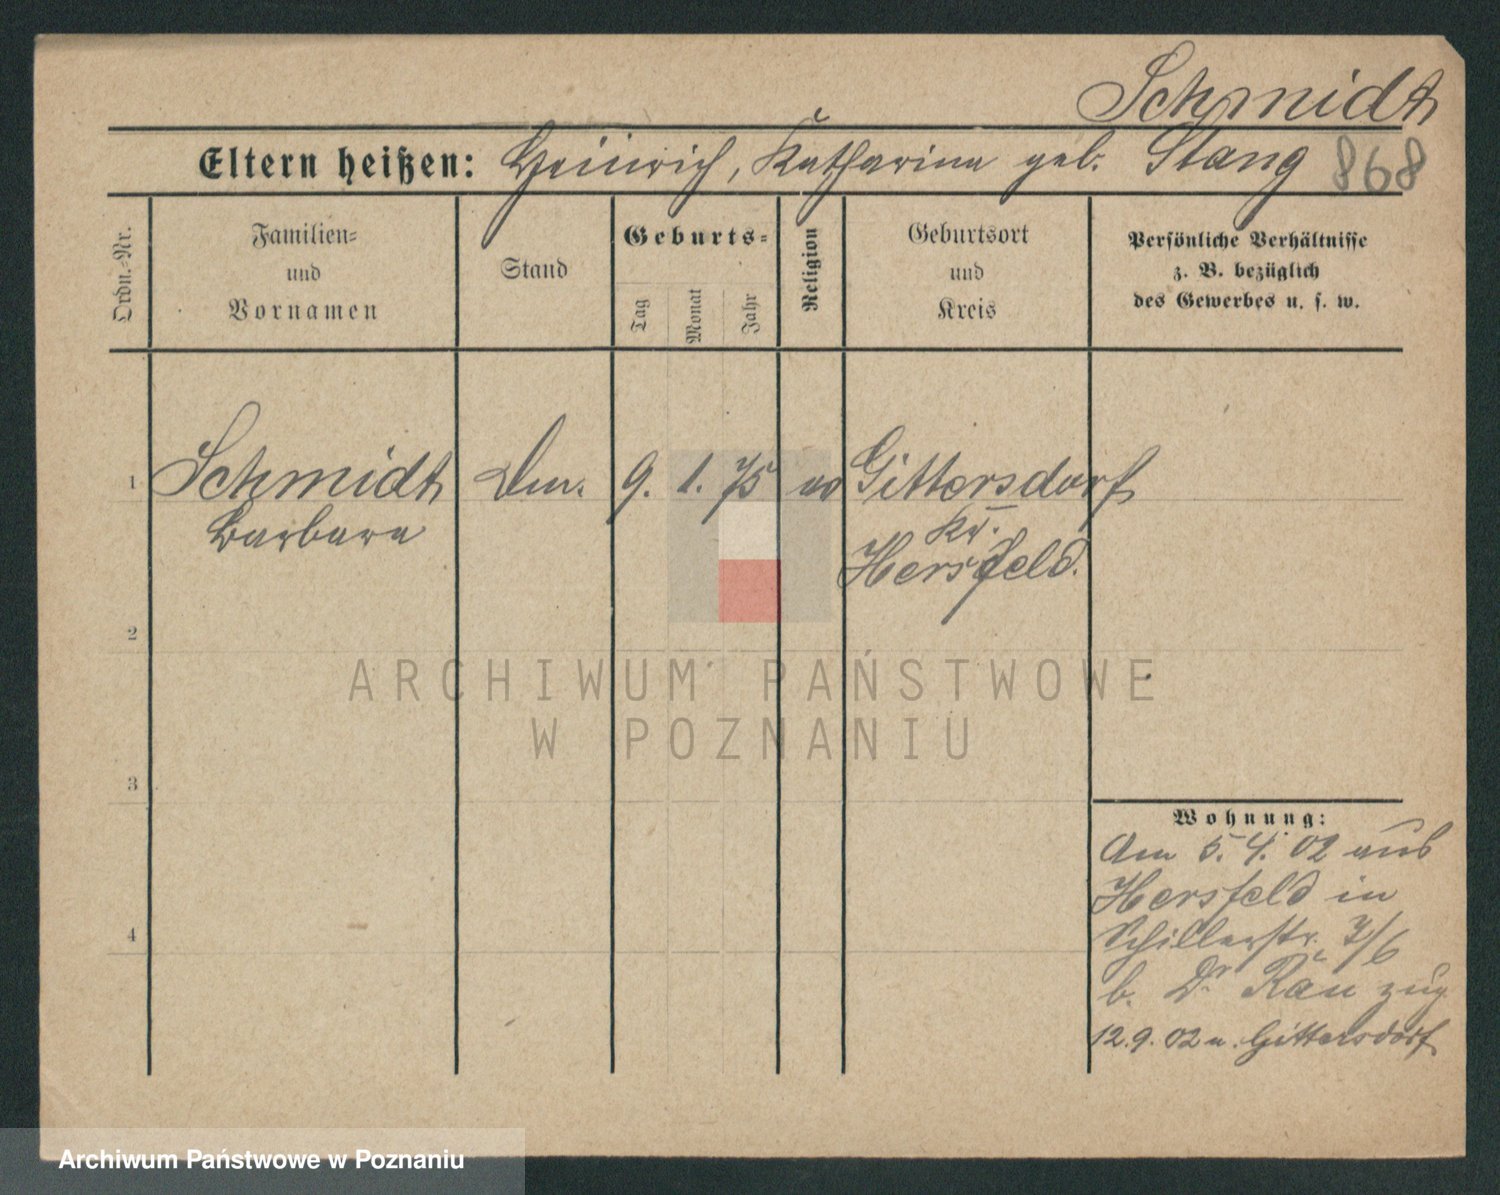 Schmidt
Eltern heißen: Heinrich, Katharina geb. Stang 868
Ordn.-Nr.
Familien-
und
Vornamen
Stand
Geburts-
Tag
Monat
Jahr
Religion
Geburtsort
und
Kreis
Persönliche Verhältnisse
z. B. bezüglich
des Gewerbes u. s. w.
1 Schmidt 9. 1. 75 ev Gittersdorf
Barbara Kr.
Hersfeld.
2
3
4
Wohnung:
Am 5. 4. 02 aus
Hersfeld in
Schillerstr. 7/6
b. Dr. zug
12.9.02 n. Gittersdorf
ARCHIWUM PAŃSTWOWE
W POZNANIU
Archiwum Państwowe w Poznaniu